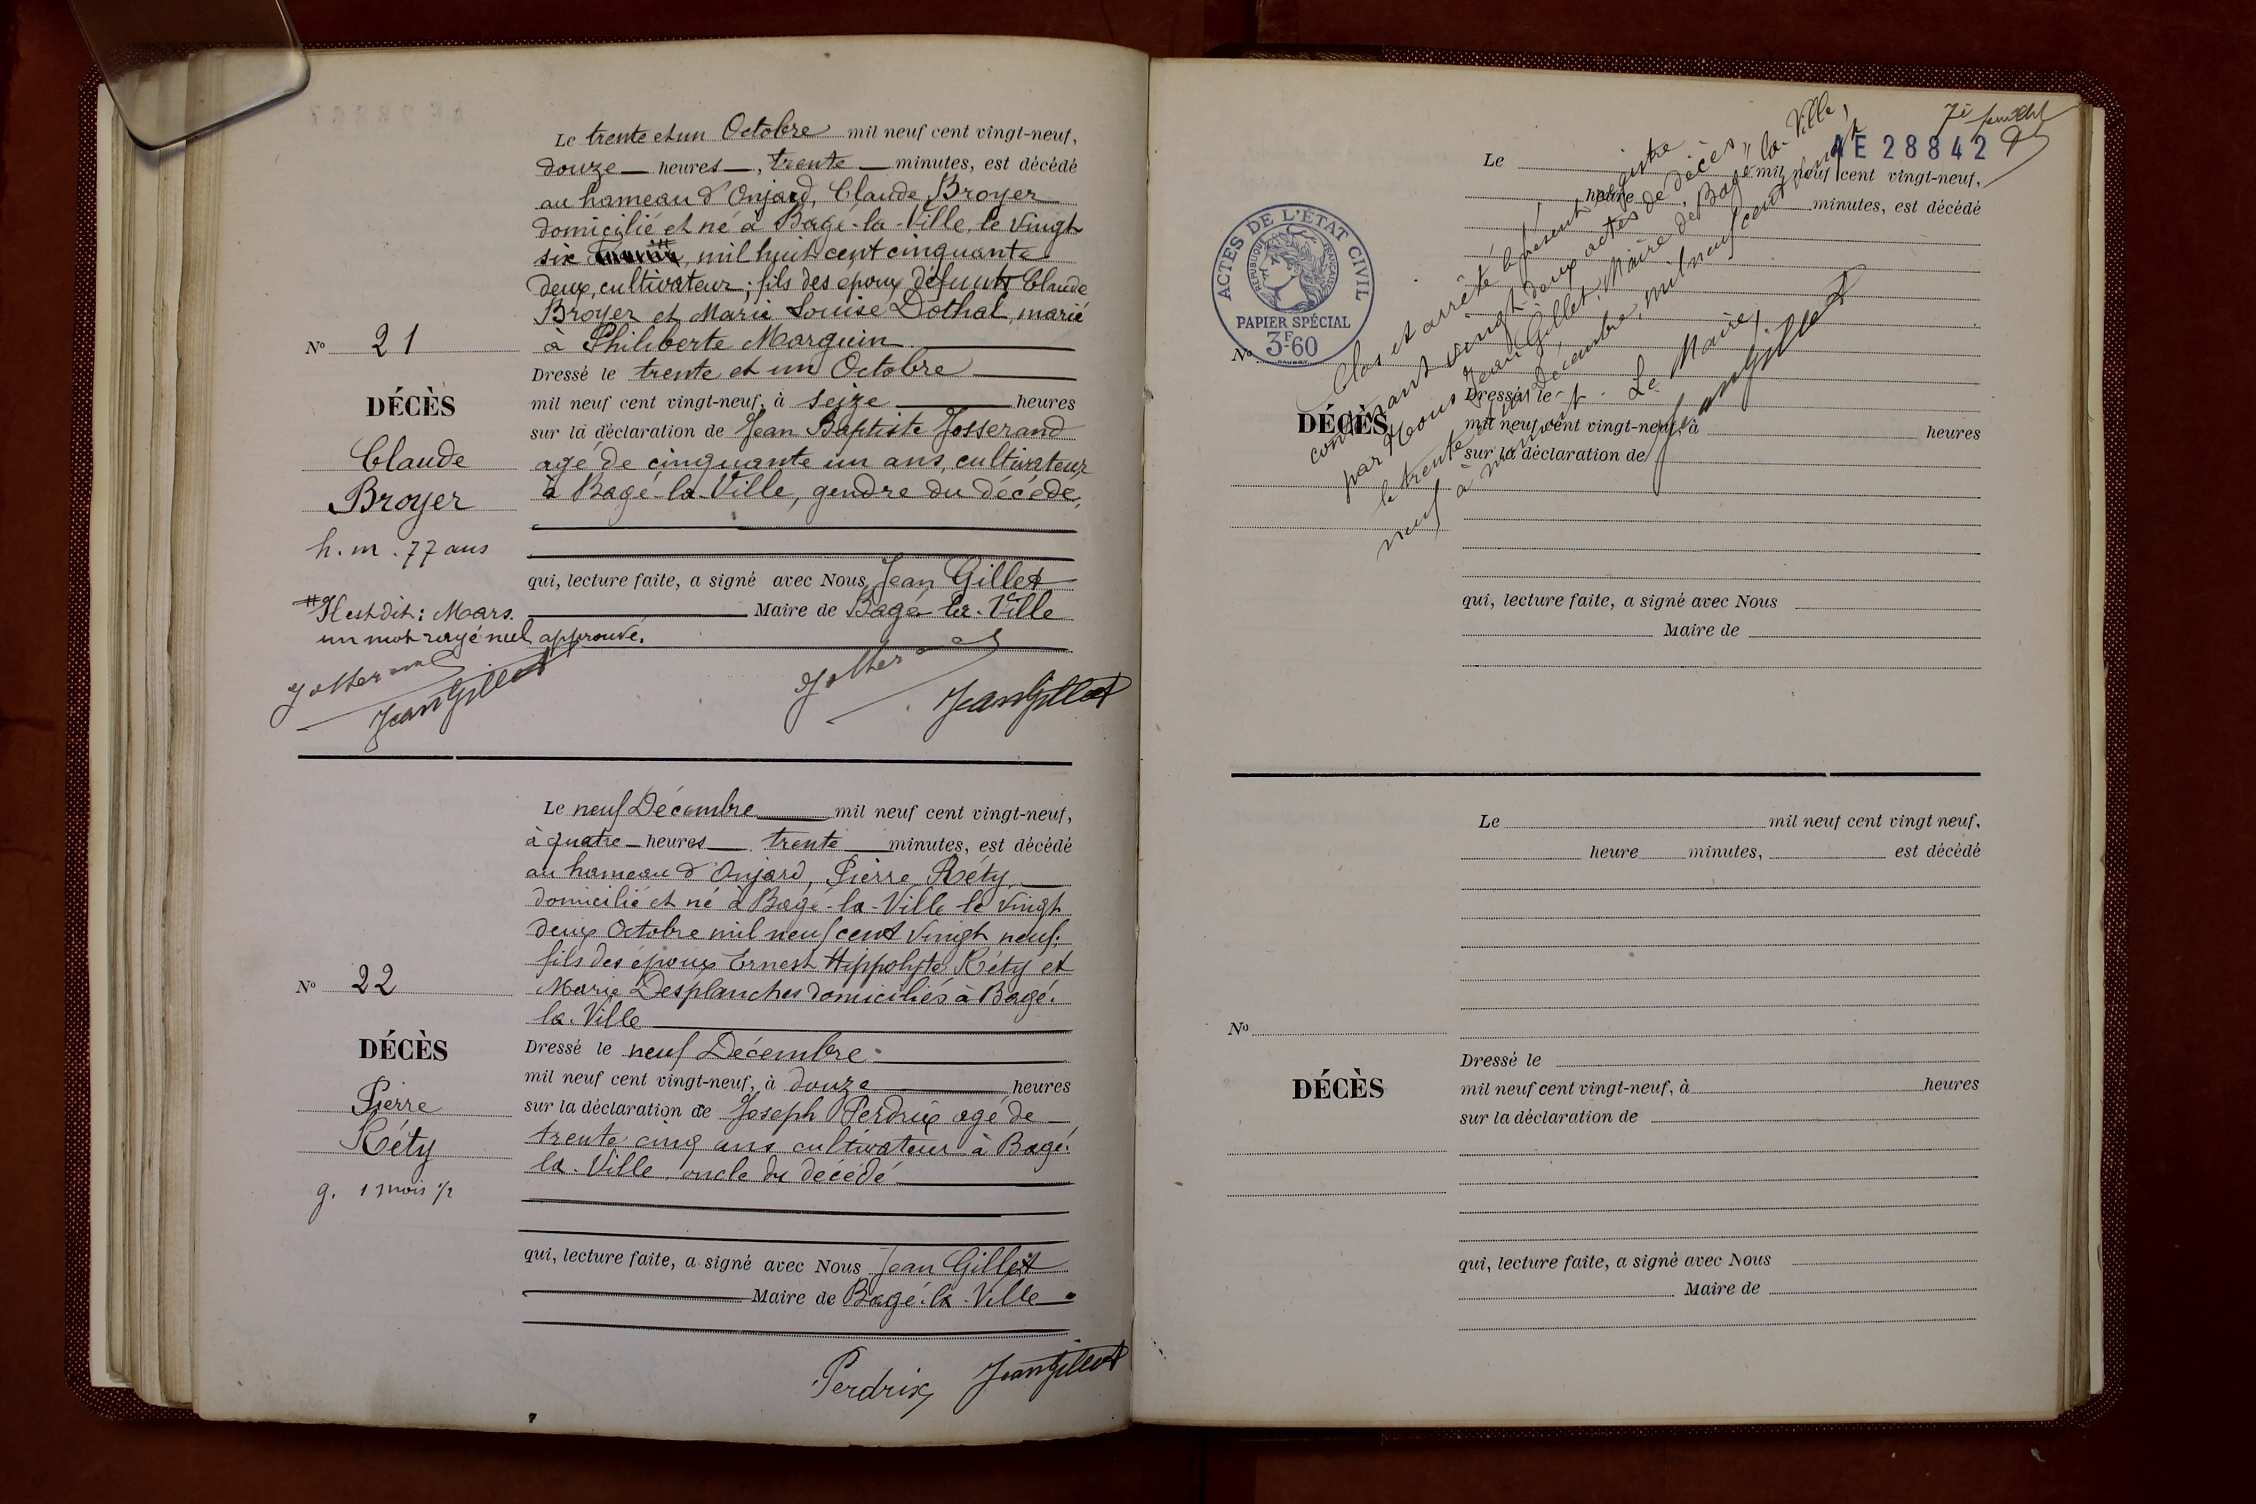 Le trente et un Octobre mil neuf cent vingt-neuf,
douze heures, trente minutes, est décédé
au hameau d'Onjard, Claude Broyer
domicilié et né à Bagé-la-Ville, le vingt
six mil huit cent cinquante
deux, cultivateur; fils des époux défunts Claude
Broyer et Marie Louise Dothal, marié
à Philiberte Marguin
Dressé le trente et un Octobre
mil neuf cent vingt-neuf, à seize heures
sur la déclaration de Jean Baptiste Josserand
agé de cinquante un ans, cultivateur
à Bagé-la-Ville, gendre du décédé,
qui, lecture faite, a signé avec Nous, Jean Gillet
Maire de Bagé-la-Ville
No 21
DÉCÈS
Claude
Broyer
h. m. 77 ans
# Il est dit: Mars.
un mot rayé nul approuvé.
Josserand
Jean Gillet
Josserand
Jean Gillet
Le neuf Décembre mil neuf cent vingt-neuf,
à quatre heures trente minutes, est décédé
au hameau d'Onjard, Pierre Réty
domicilié et né à Bagé-la-Ville le vingt
deux Octobre mil neuf cent vingt neuf.
fils des époux Ernest Hippolyte Réty et
Marie Desplanches domiciliés à Bagé-
la-Ville
Dressé le neuf Décembre
mil neuf cent vingt-neuf, à douze heures
sur la déclaration de Joseph Perdrix agé de
trente cinq ans cultivateur à Bagé-
la-Ville, oncle du décédé
qui, lecture faite, a signé avec Nous Jean Gillet
Maire de Bagé-la-Ville
No 22
DÉCÈS
Pierre
Réty
g. 1 mois 1/2
Perdrix
Jean Gillet
7è feuillet
AE 28842
ACTES DE L'ÉTAT CIVIL
RÉPUBLIQUE FRANÇAISE
PAPIER SPÉCIAL
3F-60
Le mil neuf cent vingt-neuf,
heure minutes, est décédé
No
DÉCÈS
Dressé le
mil neuf cent vingt-neuf, à heures
sur la déclaration de
qui, lecture faite, a signé avec Nous
Maire de
Clos et arrêté le présent registre
contenant vingt-deux actes de décès,
par Nous Jean Gillet, Maire de Bagé-la-Ville,
le trente et un Décembre, mil neuf cent vingt
neuf à minuit. Le Maire,
Jean Gillet
Le mil neuf cent vingt neuf,
heure minutes, est décédé
No
DÉCÈS
Dressé le
mil neuf cent vingt-neuf, à heures
sur la déclaration de
qui, lecture faite, a signé avec Nous
Maire de